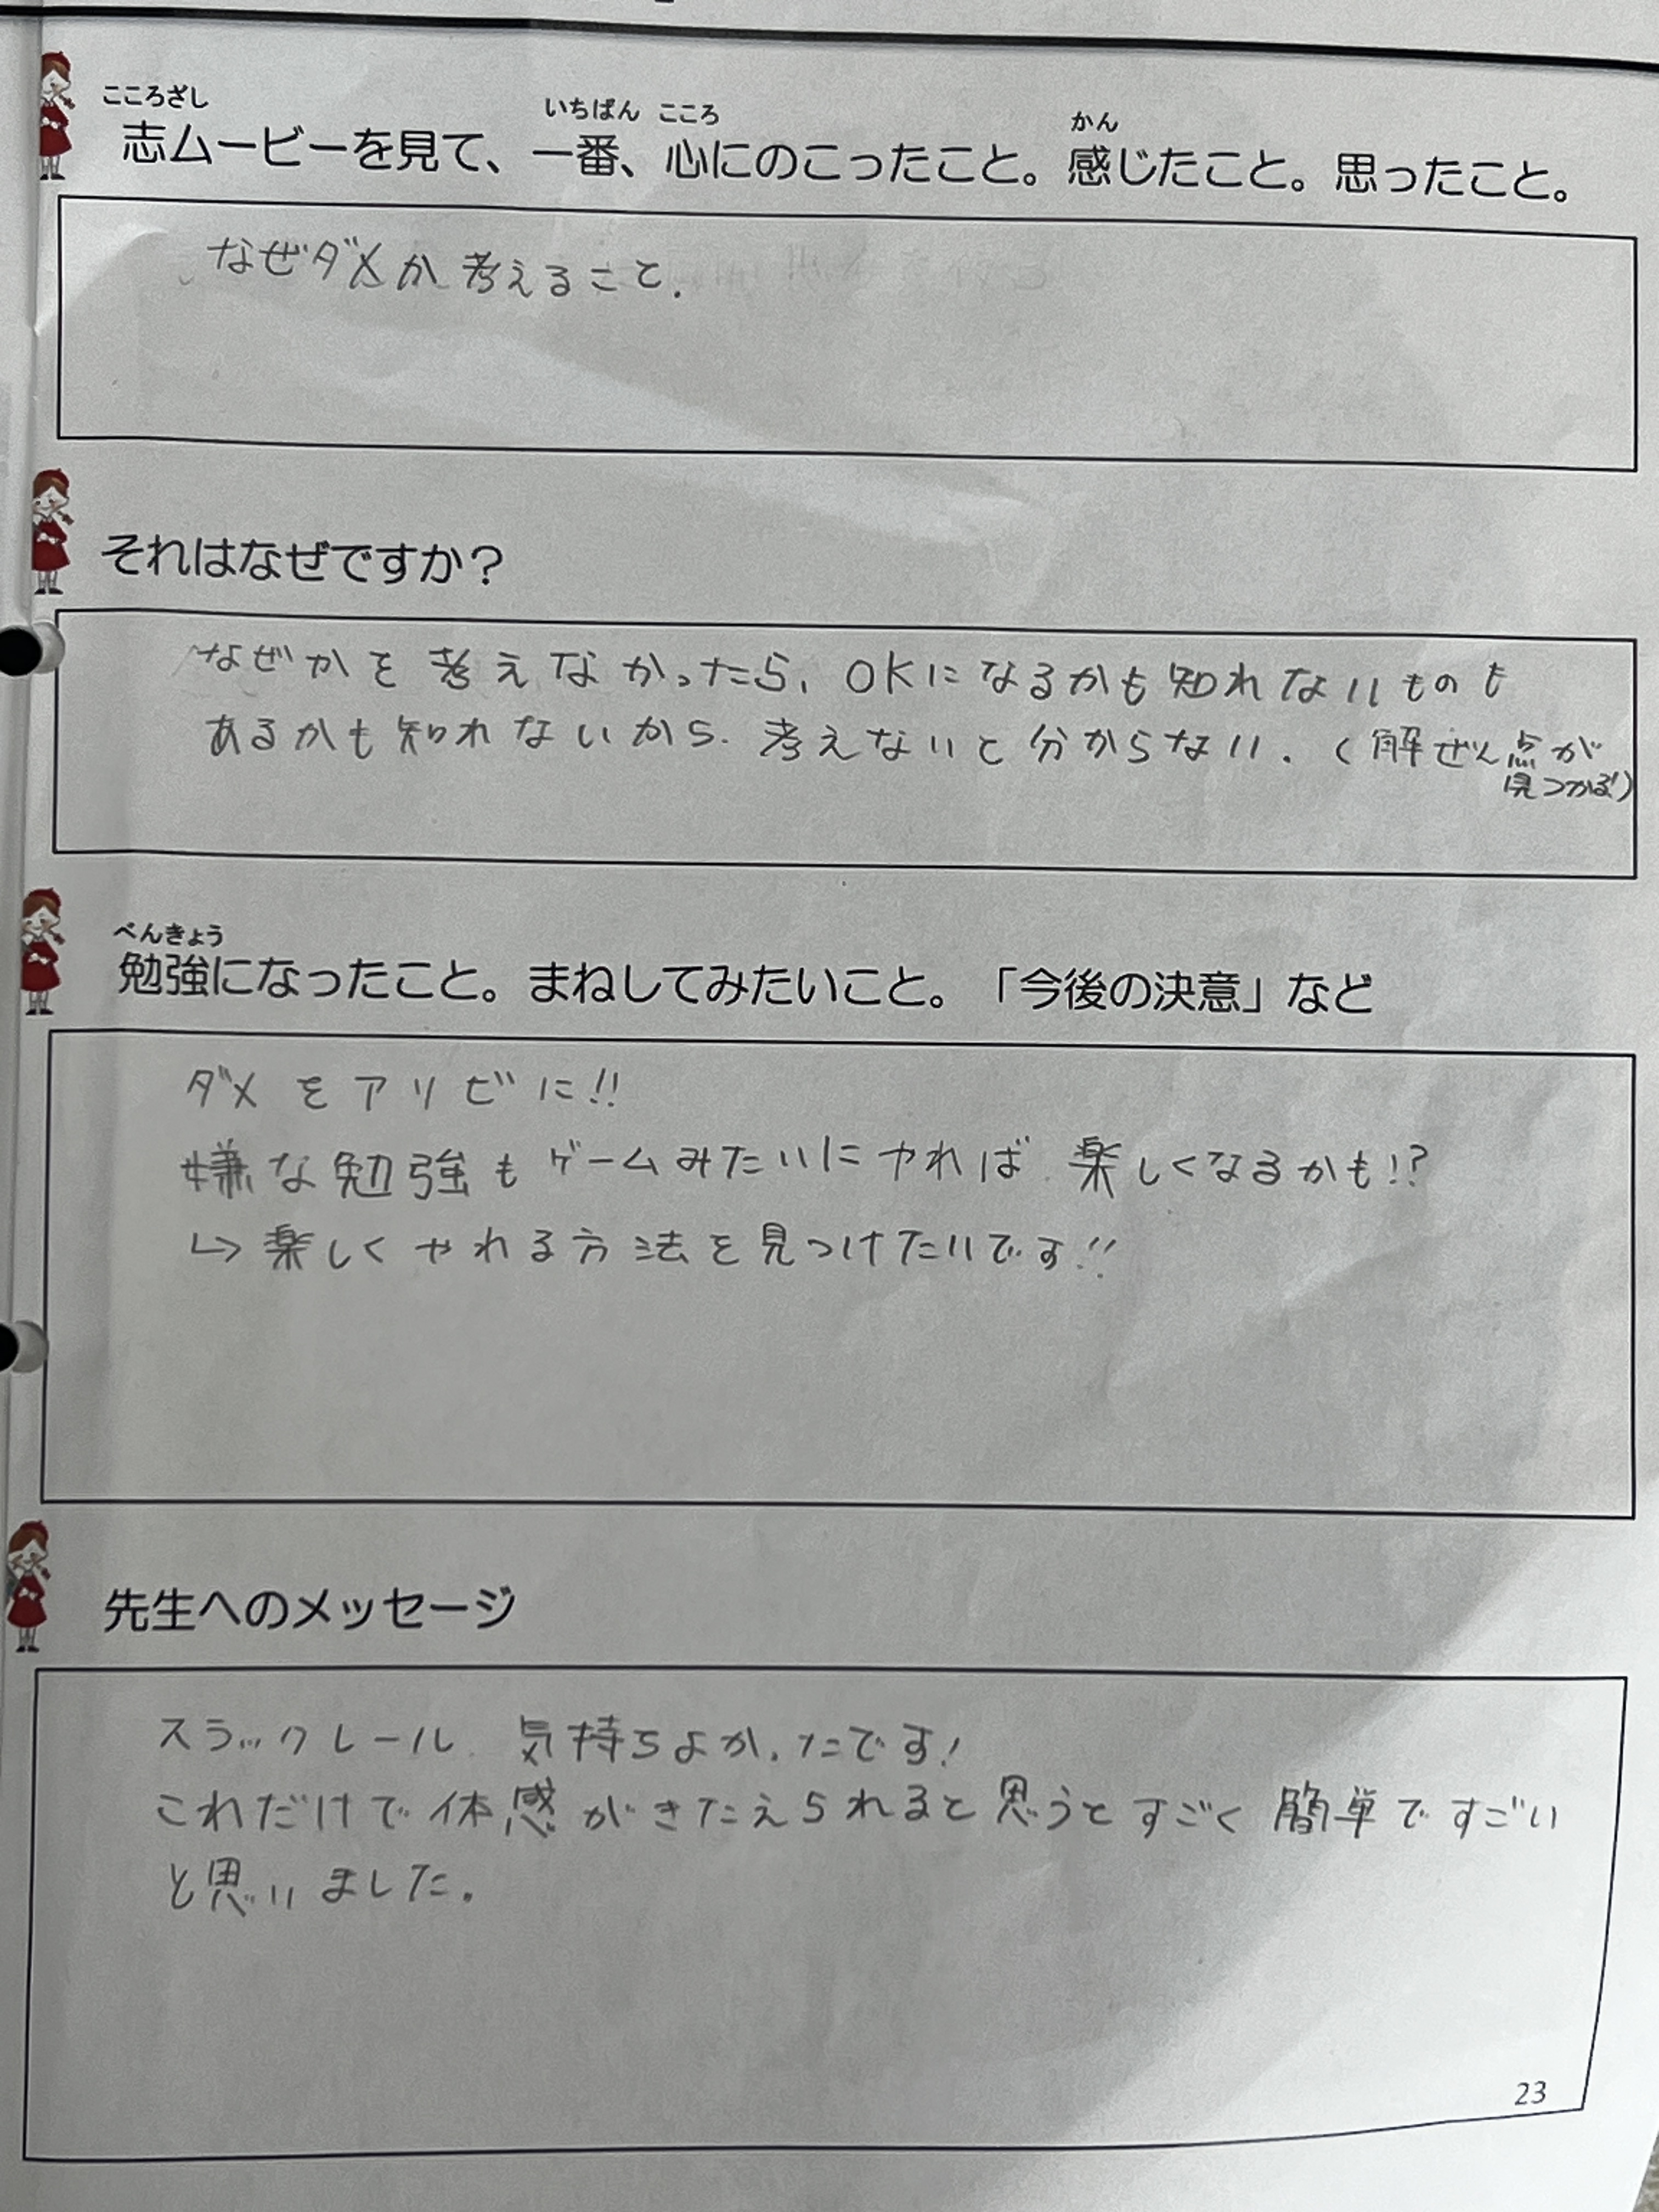 こころざし いちばん こころ かん
志ムービーを見て、一番、心にのこったこと。感じたこと。思ったこと。
なぜダメか考えること.
それはなぜですか?
なぜかを考えなかったら、OKになるかも知れないものも
あるかも知れないから、考えないと分からない.(解ぜん点が
見つかるば)
べんきょう
勉強になったこと。まねしてみたいこと。「今後の決意」など
ダメをアリビに!!
嫌な勉強もゲームみたいにやれば楽しくなるかも!?
↳楽しくやれる方法を見つけたいです!!
先生へのメッセージ
スラックレール 気持ちよかったです!
これだけで体感がきたえられると思うとすごく簡単ですごい
と思いました.
23